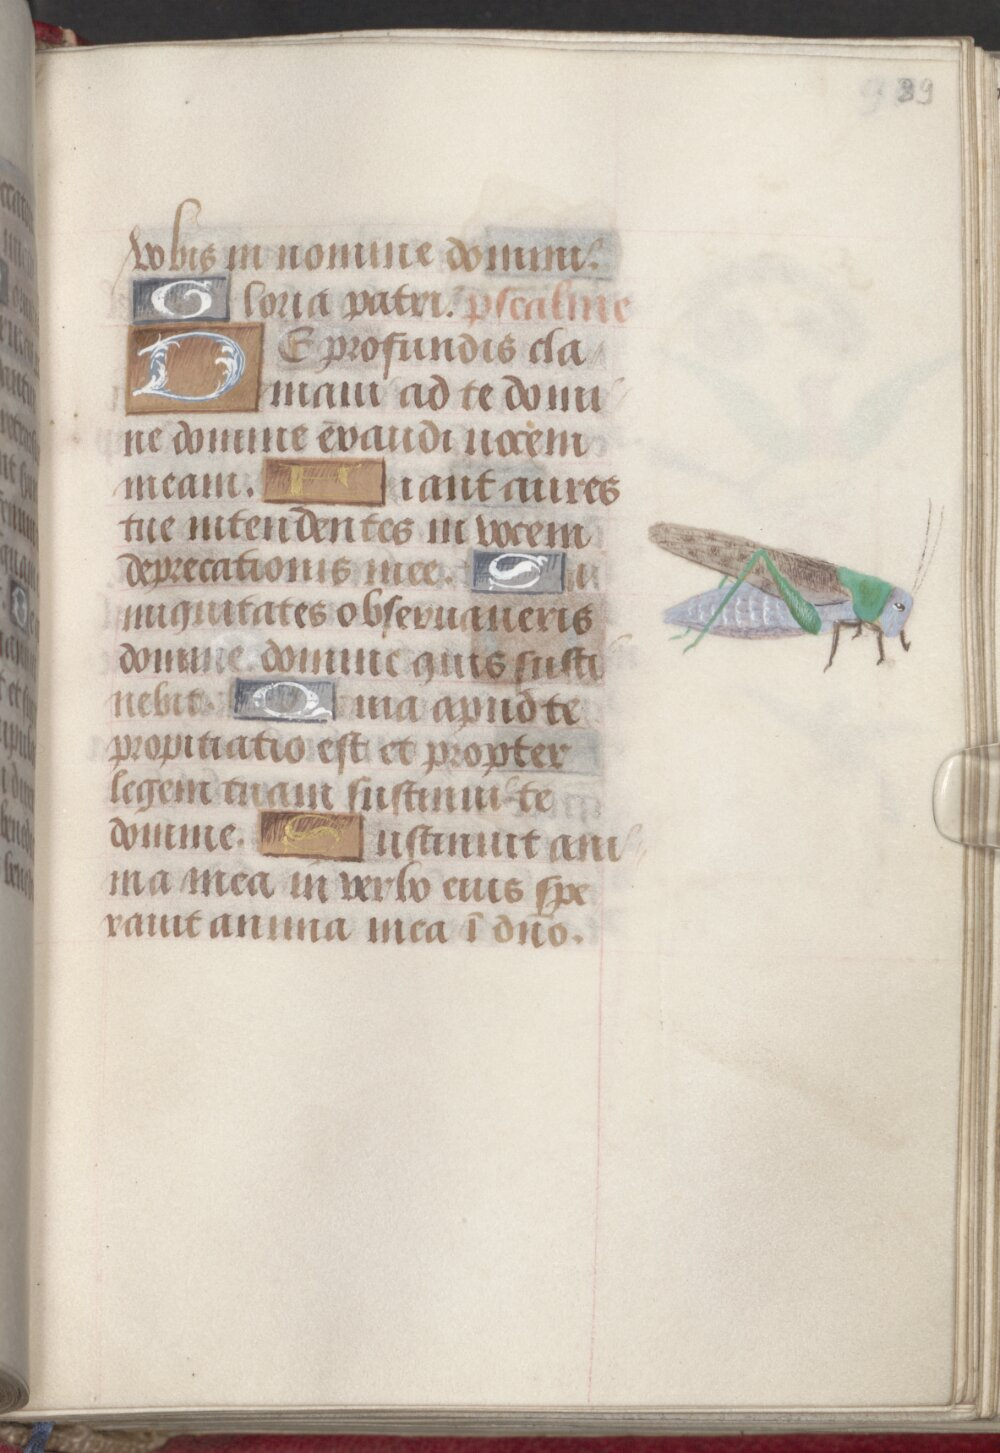 89
vobis in nomine domini.
Gloria patri. pscalme
DE profundis cla
maui ad te domi
ne domine exaudi uocem
meam. Fiant aures
tue intendentes in vocem
deprecationis mee. Si
iniquitates obseruaueris
domine domine quis susti
nebit. Quia apud te
propitiatio est et propter
legem tuam sustinui te
domine. Sustinuit ani
ma mea in verbo eius spe
rauit anima mea ī dño.